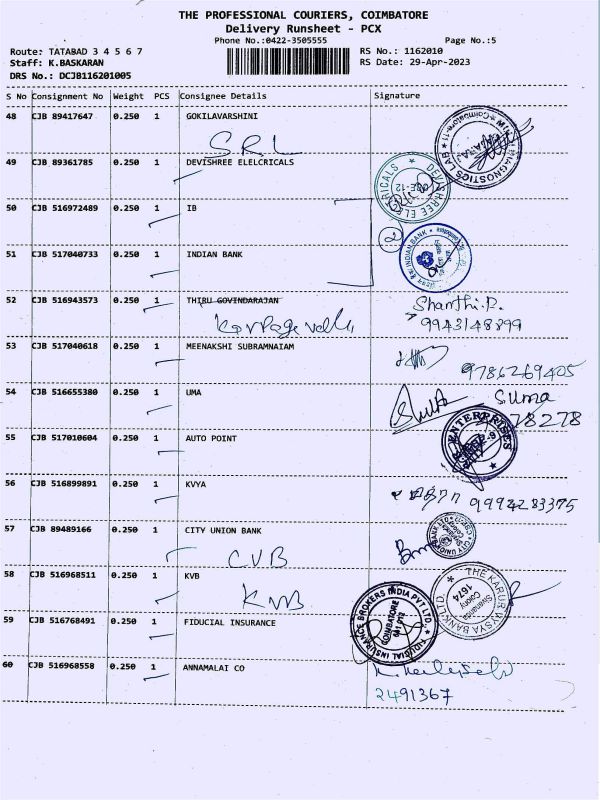 THE PROFESSIONAL COURIERS, COIMBATORE
Delivery Runsheet - PCX
Phone No.:0422-3505555 Page No.:5
Route: TATABAD 3 4 5 6 7 RS No.: 1162010
Staff: K.BASKARAN RS Date: 29-Apr-2023
DRS No.: DCJB116201005
S No Consignment No Weight PCS Consignee Details Signature
48 CJB 89417647 0.250 1 GOKILAVARSHINI
S.R.L
DIAGNOSTICS LAB
49 CJB 89361785 0.250 1 DEVISHREE ELELCRICALS
DEVISHREE ELECTRICALS
50 CJB 516972489 0.250 1 IB
2
51 CJB 517040733 0.250 1 INDIAN BANK
INDIAN BANK
52 CJB 516943573 0.250 1 THIRU GOVINDARAJAN
Shanthi.P.
9943148899
53 CJB 517040618 0.250 1 MEENAKSHI SUBRAMNAIAM
9786269405
54 CJB 516655380 0.250 1 UMA
Suma
78278
55 CJB 517010604 0.250 1 AUTO POINT
ENTERPRISES
56 CJB 516899891 0.250 1 KVYA
9994283375
57 CJB 89489166 0.250 1 CITY UNION BANK
CUB
CITY UNION BANK LTD
58 CJB 516968511 0.250 1 KVB
KVB
THE KARUR VYSYA BANK LTD.
1674
59 CJB 516768491 0.250 1 FIDUCIAL INSURANCE
FIDUCIAL INSURANCE BROKERS INDIA PVT LTD.
COIMBATORE
641 012
60 CJB 516968558 0.250 1 ANNAMALAI CO
2491367